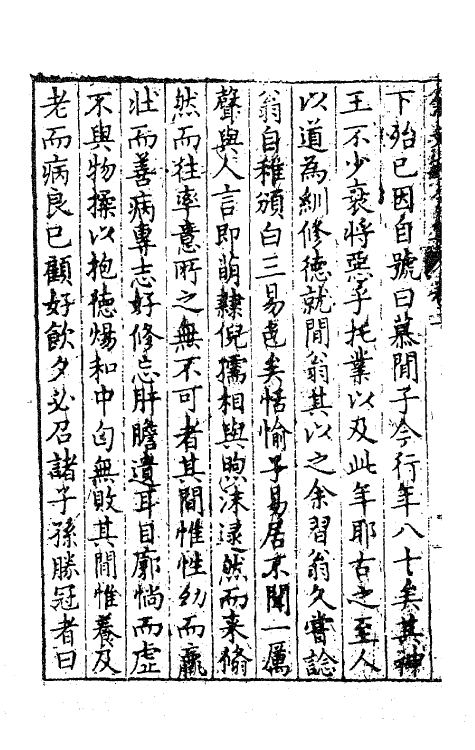 下殆已因自號曰慕閒子今行年八十矣其神
王不少衰將惡乎托業以及此年耶古之至人
以道為紃修德就閒翁其以之余習翁久嘗諗
翁自稚頒白三易邑矣恬愉子易居未聞一厲
聲與人言即萌隸倪孺相與煦沫逯然而来翛
然而往率意所之無不可者其閒惟性幼而羸
壯而善病專志好修忘肝膽遺耳目廓惝而虛
不與物攖以抱德煬和中㐫無敗其閒惟養及
老而病良已顧好飲夕必召諸子孫勝冠者曰